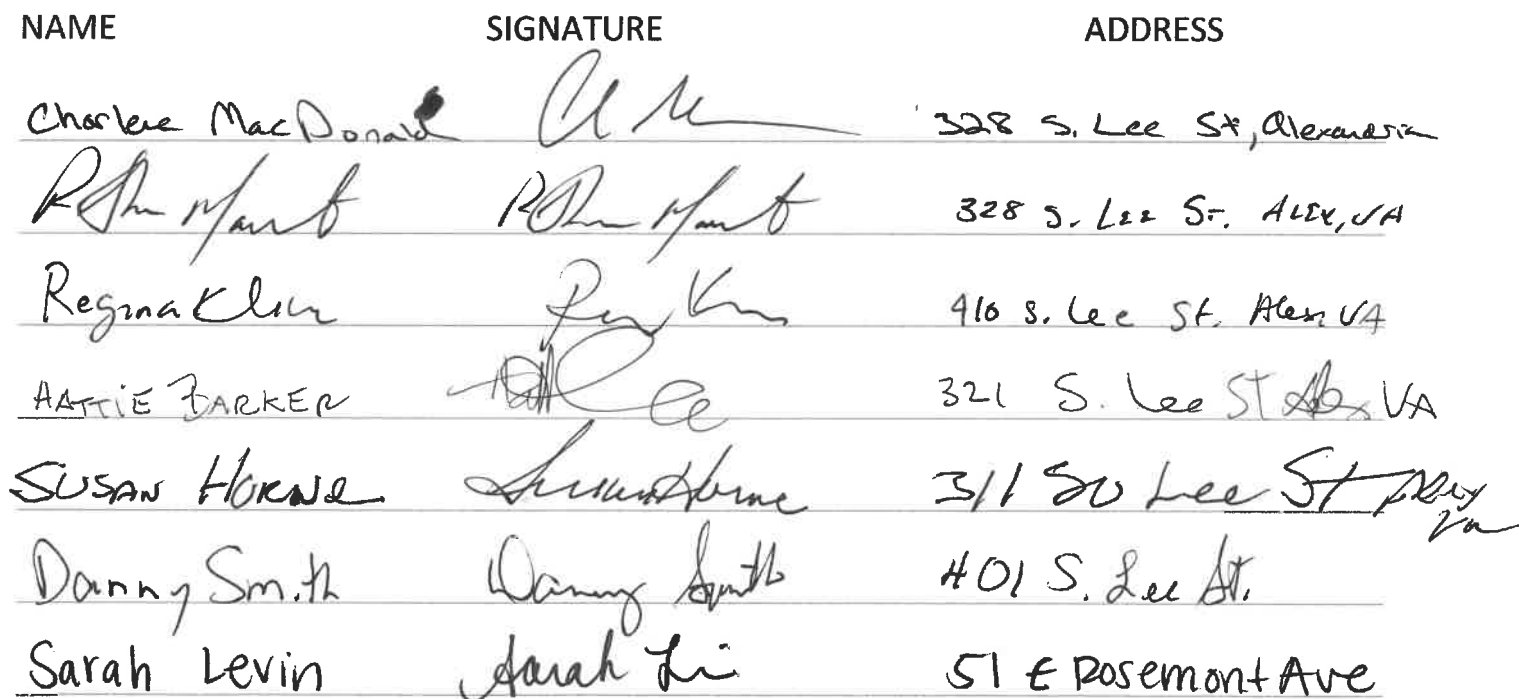 NAME SIGNATURE ADDRESS
Charlene MacDonald 328 S. Lee St, Alexandria
328 S. Lee St. Alex, VA
Regina 410 S. Lee St. Alex, VA
HATTIE BARKER 321 S. Lee ST Alex VA
SUSAN HORNE Susan Horne 311 So Lee St Alex
Va
Danny Smith Danny Smith 401 S. Lee St.
Sarah Levin Sarah 51 E Rosemont Ave